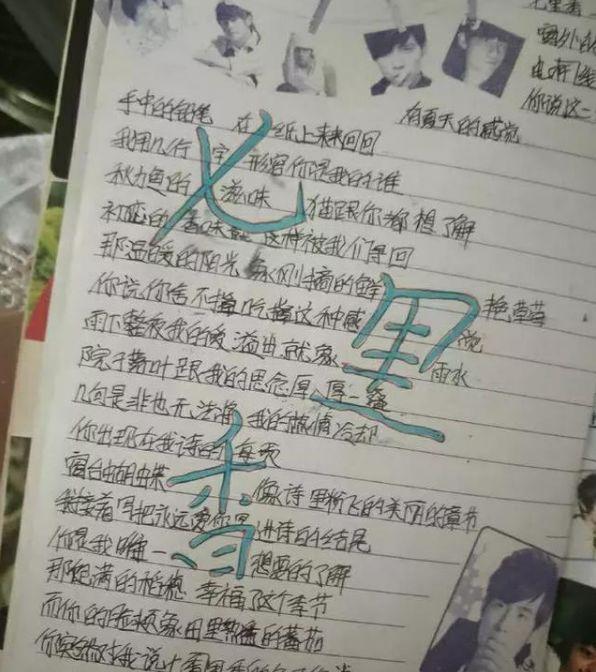 窗外的
你说这一
有夏天的感觉
手中的铅笔 在纸上来来回回
我用几行字 形容你是我的谁
秋刀鱼的 滋味 猫跟你都想了解
初恋的香味就这样被我们寻回
那温暖的阳光 象刚摘的鲜艳草莓
你说你舍不得吃掉这种感觉
雨下整夜我的爱溢出就象雨水
院子落叶跟我的思念厚厚一叠
几句是非也无法将我的热情冷却
你出现在我诗的每页
窗台蝴蝶 像诗里纷飞的美丽的章节
我接着写把永远爱你写进诗的结尾
你是我唯一想要的了解
那饱满的稻穗 幸福了这个季节
而你的脸颊象田里熟透的蕃茄
你突然对我说七里香的名字
七里香